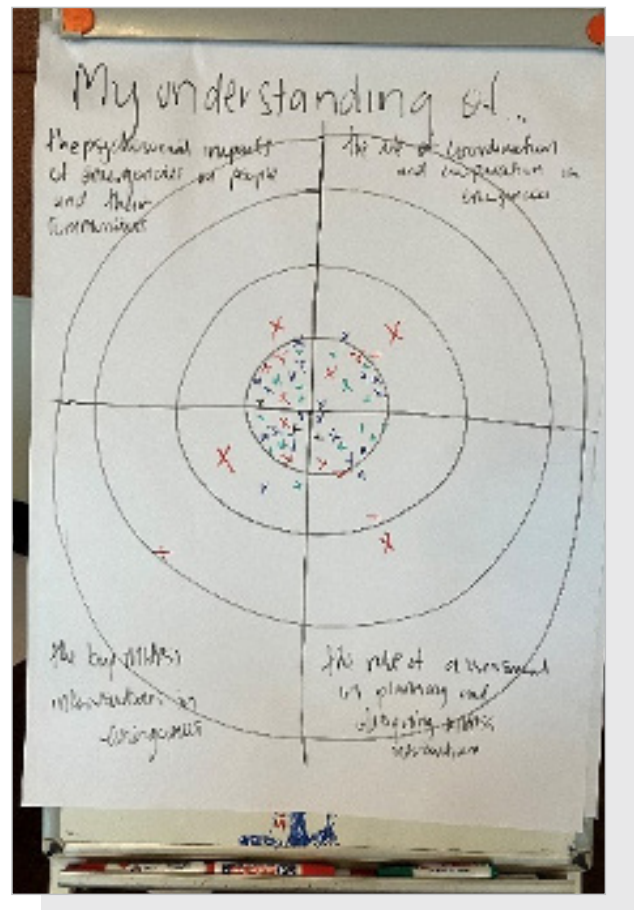 My understanding of...
the psychosocial impacts
of emergencies on people
and their
communities
the role of coordination
and in
emergencies
the key MHPSS
interventions in
emergencies
the role of assessment
in planning and
designing MHPSS
intervention